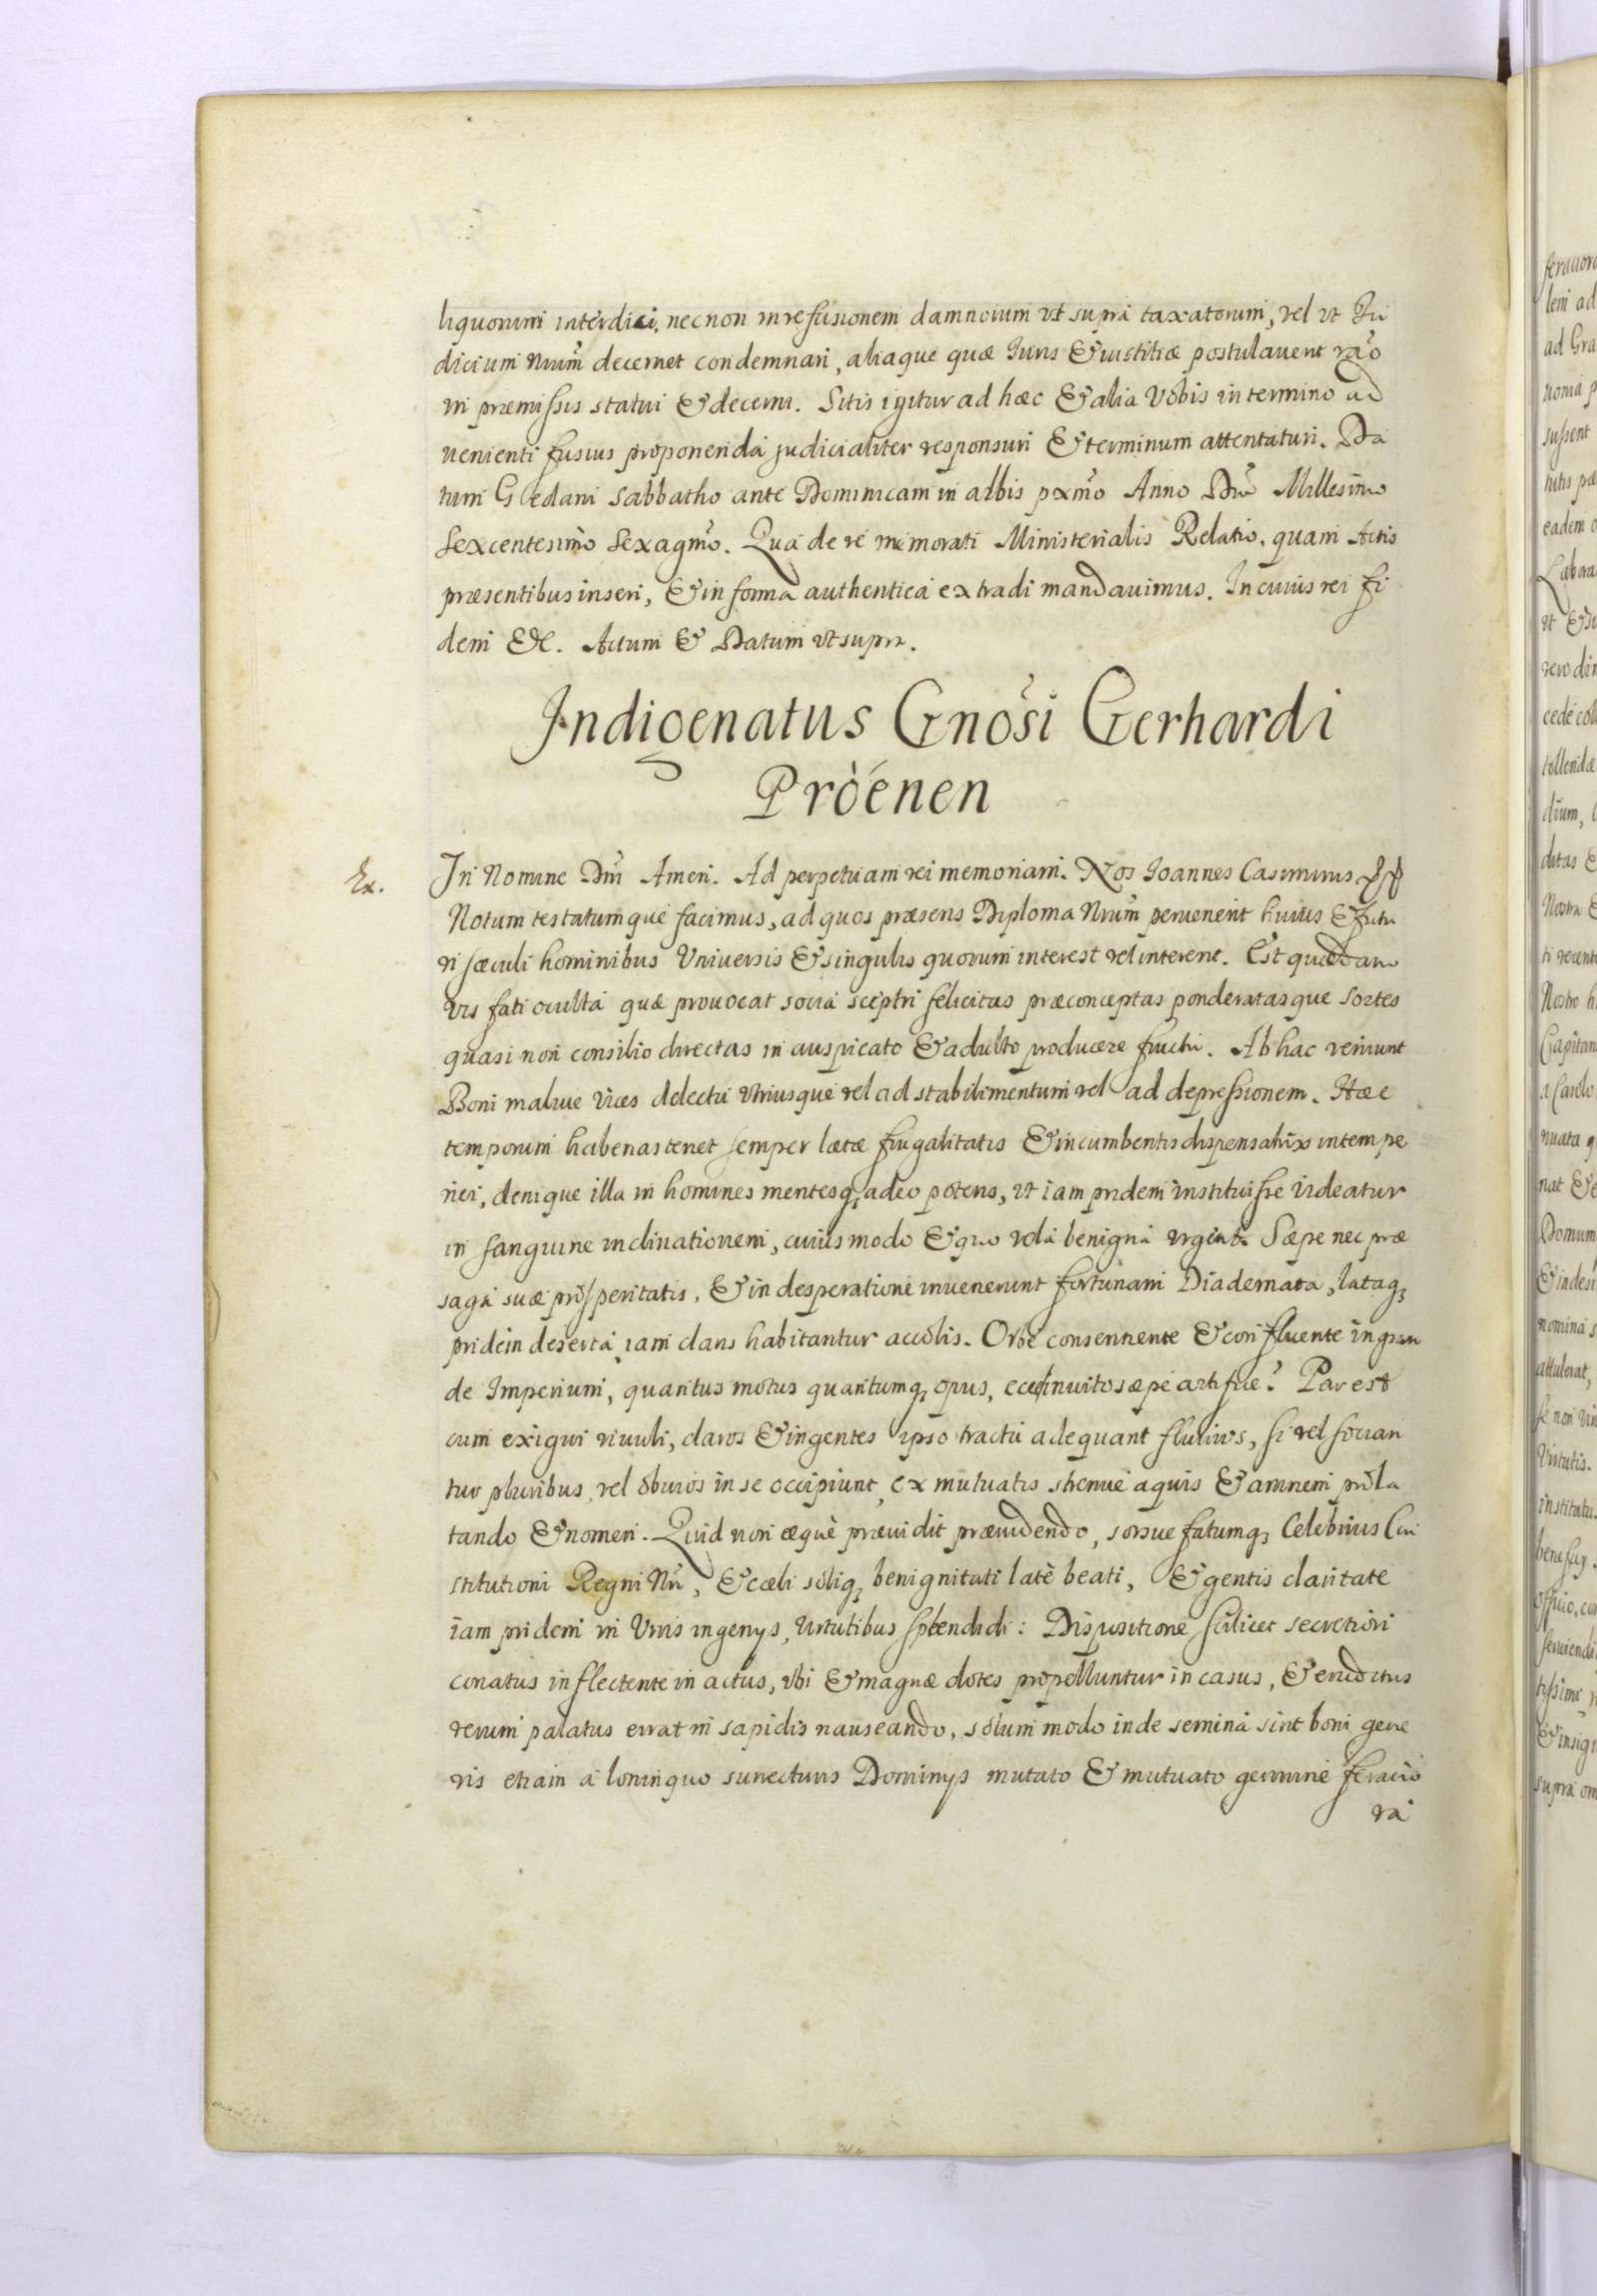 liquorum interdici, necnon in refusionem damnorum vt supra taxatorum, vel vt Iu
dicium Nrum decernet condemnari, aliaque quæ Iuris & iustitiæ postulauerit rão
in præmissis statui & decerni. Sitis igitur ad hæc & alia Vobis in termino ad
uenienti fusius proponenda judicialiter responsuri & terminum attentaturi. Da
tum Gedani Sabbatho ante Dominicam in albis pxmo Anno Dni Millesimo
Sexcentesimo Sexagmo. Qua de re memorati Ministerialis Relatio, quam Actis
præsentibus inseri, & in forma authentica extradi mandauimus. In cuius rei fi
dem &c. Actum & Datum vt supra.
Indigenatus Gnosi Gerhardi
Pròénen
Ex.
In Nomine Dni Amen. Ad perpetuam rei memoriam. Nos Ioannes Casimirus
Notum testatumque facimus, ad quos præsens Diploma Nrum peruenerit huius & futu
ri sæculi hominibus Vniuersis & singulis quorum interest vel intererit. Est quædam
vis fati oculta quæ prouocat socia sceptri felicitas præconceptas ponderatasque Sortes
quasi non consilio directas in auspicato & adulto producere fructu. Ab hac veniunt
Boni maliue vices delectu vtriusque vel ad stabilimentum vel ad depressionem. Hæc
temporum habenas tenet semper lætæ frugalitatis & incumbentis dispensatrix intempe
riei, denique illa in homines mentesq adeo potens, vt iam pridem instituisse videatur
in sanguine inclinationem, cuius modo & quo vola benigna vrgeat. Sæpe nec præ
saga suæ prosperitatis, & in desperatione inuenerunt fortunam Diademata, lataq
pridem deserta iam claris habitantur accolis. Orbe consentiente & confluente in gran
de Imperium, quantus motus quantumq opus, ecce inuito sæpe artifice? Par est
cum exigui riuuli, claros & ingentes ipso tractu adequant fluuios, si vel socian
tur pluribus, vel obuios in se occipiunt, ex mutuatis strenue aquis & amnem prola
tando & nomen. Quid non æque præuidit præuidendo, sorsue fatumq Celebrius Con
stitutioni Regni Nri, & cæli soliq benignitati late beati, & gentis claritate
iam pridem in Viris ingenys, virtutibus splendidi: Dispositione scilicet secretiori
conatus inflectente in actus, vbi & magnæ dotes propelluntur in casus, & eruditus
rerum palatus errat in sapidis nauseando, solum modo inde semina sint boni gene
ris etiam a longinquo sunecturis Dominys mutato & mutuato germine feracio
ra